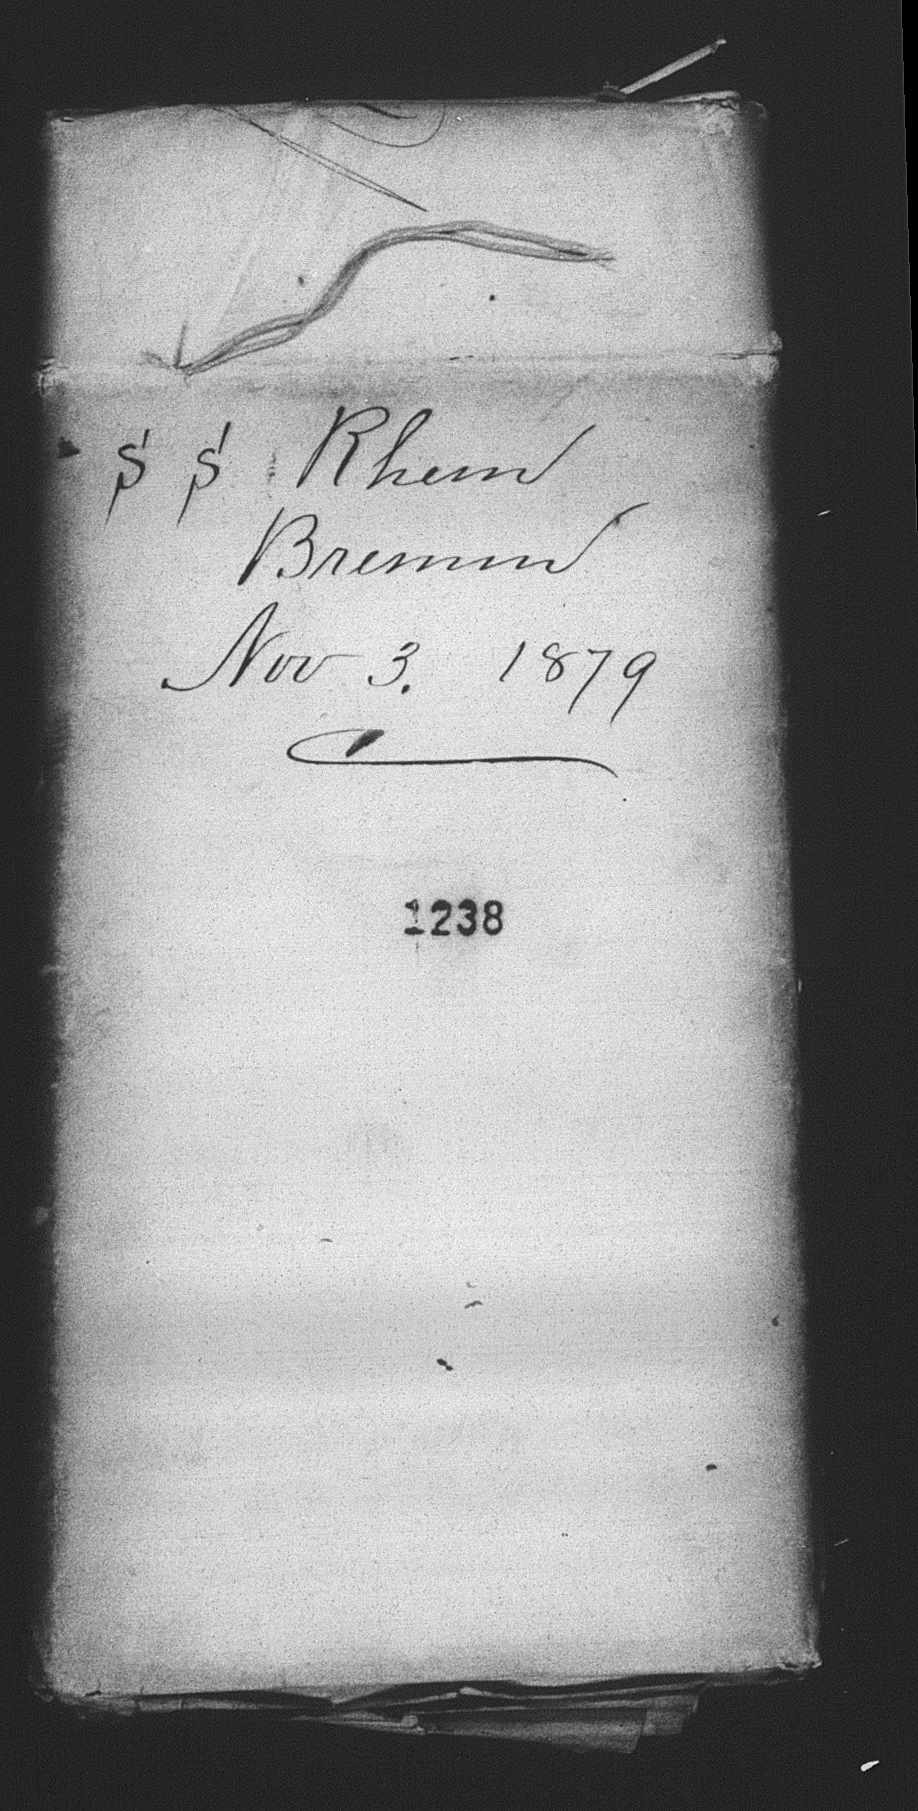 SS Rhein
Bremen
Nov 3. 1879
1238